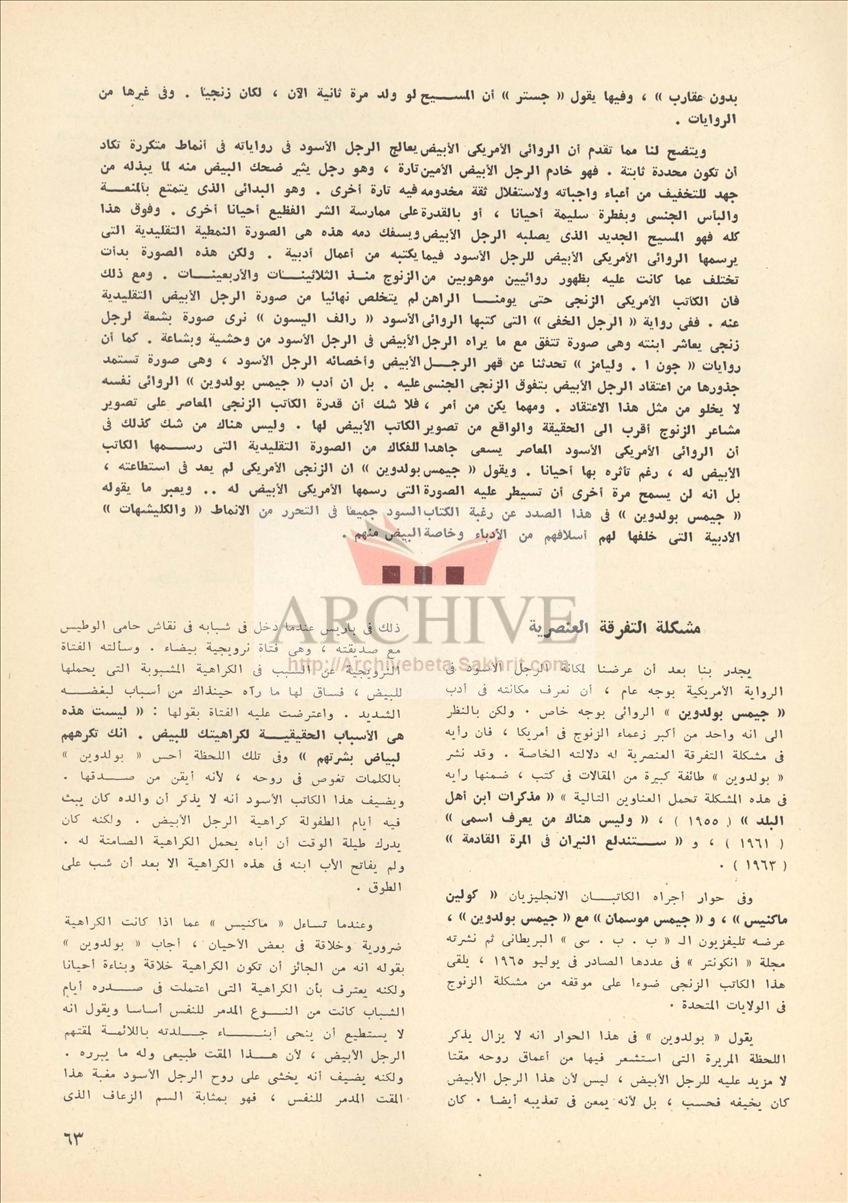 بدون عقارب » ، وفيها يقول « جستر » أن المسيح لو ولد مرة ثانية الآن ، لكان زنجيا . وفى غيرها من
الروايات .
ويتضح لنا مما تقدم أن الروائى الأمريكى الأبيض يعالج الرجل الأسود فى رواياته فى أنماط متكررة تكاد
أن تكون محددة ثابتة . فهو خادم الرجل الأبيض الأمين تارة ، وهو رجل يثير ضحك البيض منه لما يبذله من
جهد للتخفيف من أعباء واجباته ولاستغلال ثقة مخدومه فيه تارة أخرى . وهو البدائى الذى يتمتع بالمنعة
والبأس الجنسى وبفطرة سليمة أحيانا ، أو بالقدرة على ممارسة الشر الفظيع أحيانا أخرى . وفوق هذا
كله فهو المسيح الجديد الذى يصلبه الرجل الأبيض ويسفك دمه هذه هى الصورة النمطية التقليدية التى
يرسمها الروائى الأمريكى الأبيض للرجل الأسود فيما يكتبه من أعمال أدبية . ولكن هذه الصورة بدأت
تختلف عما كانت عليه بظهور روائيين موهوبين من الزنوج منذ الثلاثينات والأربعينات . ومع ذلك
فان الكاتب الأمريكى الزنجى حتى يومنا الراهن لم يتخلص نهائيا من صورة الرجل الأبيض التقليدية
عنه . ففى رواية « الرجل الخفى » التى كتبها الروائى الأسود « رالف اليسون » نرى صورة بشعة لرجل
زنجى يعاشر ابنته وهى صورة تتفق مع ما يراه الرجل الأبيض فى الرجل الأسود من وحشية وبشاعة . كما أن
روايات « جون ا . وليامز » تحدثنا عن قهر الرجل الأبيض وأخصائه الرجل الأسود ، وهى صورة تستمد
جذورها من اعتقاد الرجل الأبيض بتفوق الزنجى الجنسى عليه . بل ان أدب « جيمس بولدوين » الروائى نفسه
لا يخلو من مثل هذا الاعتقاد . ومهما يكن من أمر ، فلا شك أن قدرة الكاتب الزنجى المعاصر على تصوير
مشاعر الزنوج أقرب الى الحقيقة والواقع من تصوير الكاتب الأبيض لها . وليس هناك من شك كذلك فى
أن الروائى الأمريكى الأسود المعاصر يسعى جاهدا للفكاك من الصورة التقليدية التى رسمها الكاتب
الأبيض له ، رغم تأثره بها أحيانا . ويقول « جيمس بولدوين » ان الزنجى الأمريكى لم يعد فى استطاعته ،
بل انه لن يسمح مرة أخرى أن تسيطر عليه الصورة التى رسمها الأمريكى الأبيض له .. ويعبر ما يقوله
« جيمس بولدوين » فى هذا الصدد عن رغبة الكتاب السود جميعا فى التحرر من الانماط « والكليشهات »
الأدبية التى خلفها لهم أسلافهم من الأدباء وخاصة البيض منهم .
ARCHIVE
http://Archivebeta.Sakhrit.com
مشكلة التفرقة العنصرية
يجدر بنا بعد أن عرضنا لمكانة الرجل الأسود فى
الرواية الأمريكية بوجه عام ، أن نعرف مكانته فى أدب
« جيمس بولدوين » الروائى بوجه خاص . ولكن بالنظر
الى انه واحد من أكبر زعماء الزنوج فى أمريكا ، فان رأيه
فى مشكلة التفرقة العنصرية له دلالته الخاصة . وقد نشر
« بولدوين » طائفة كبيرة من المقالات فى كتب ، ضمنها رأيه
فى هذه المشكلة تحمل العناوين التالية » « مذكرات ابن أهل
البلد » ( ١٩٥٥ ) ، « وليس هناك من يعرف اسمى »
( ١٩٦١ ) ، و « ستندلع النيران فى المرة القادمة »
( ١٩٦٣ ) .
وفى حوار أجراه الكاتبان الانجليزيان « كولين
ماكنيس » ، و « جيمس موسمان » مع « جيمس بولدوين » ،
عرضه تليفزيون الـ « ب . ب . سى » البريطانى ثم نشرته
مجلة « انكونتر » فى عددها الصادر فى يوليو ١٩٦٥ ، يلقى
هذا الكاتب الزنجى ضوءا على موقفه من مشكلة الزنوج
فى الولايات المتحدة .
يقول « بولدوين » فى هذا الحوار انه لا يزال يذكر
اللحظة المريرة التى استشعر فيها من أعماق روحه مقتا
لا مزيد عليه للرجل الأبيض ، ليس لأن هذا الرجل الأبيض
كان يخيفه فحسب ، بل لأنه يمعن فى تعذيبه أيضا . كان
ذلك فى باريس عندما دخل فى شبابه فى نقاش حامى الوطيس
مع صديقته ، وهى فتاة نرويجية بيضاء . وسألته الفتاة
النرويجية عن السبب فى الكراهية المشبوبة التى يحملها
للبيض ، فساق لها ما رآه حينذاك من أسباب لبغضه
الشديد . واعترضت عليه الفتاة بقولها : « ليست هذه
هى الأسباب الحقيقية لكراهيتك للبيض . انك تكرههم
لبياض بشرتهم » وفى تلك اللحظة أحس « بولدوين »
بالكلمات تغوص فى روحه ، لأنه أيقن من صدقها .
ويضيف هذا الكاتب الأسود أنه لا يذكر أن والده كان يبث
فيه أيام الطفولة كراهية الرجل الأبيض . ولكنه كان
يدرك طيلة الوقت أن أباه يحمل الكراهية الصامتة له .
ولم يفاتح الأب ابنه فى هذه الكراهية الا بعد أن شب على
الطوق .
وعندما تساءل « ماكنيس » عما اذا كانت الكراهية
ضرورية وخلاقة فى بعض الأحيان ، أجاب « بولدوين »
بقوله انه من الجائز أن تكون الكراهية خلاقة وبناءة أحيانا
ولكنه يعترف بأن الكراهية التى اعتملت فى صدره أيام
الشباب كانت من النوع المدمر للنفس أساسا ويقول انه
لا يستطيع أن ينحى أبناء جلدته باللائمة لمقتهم
الرجل الأبيض ، لأن هذا المقت طبيعى وله ما يبرره .
ولكنه يضيف أنه يخشى على روح الرجل الأسود مغبة هذا
المقت المدمر للنفس ، فهو بمثابة السم الزعاف الذى
٦٣